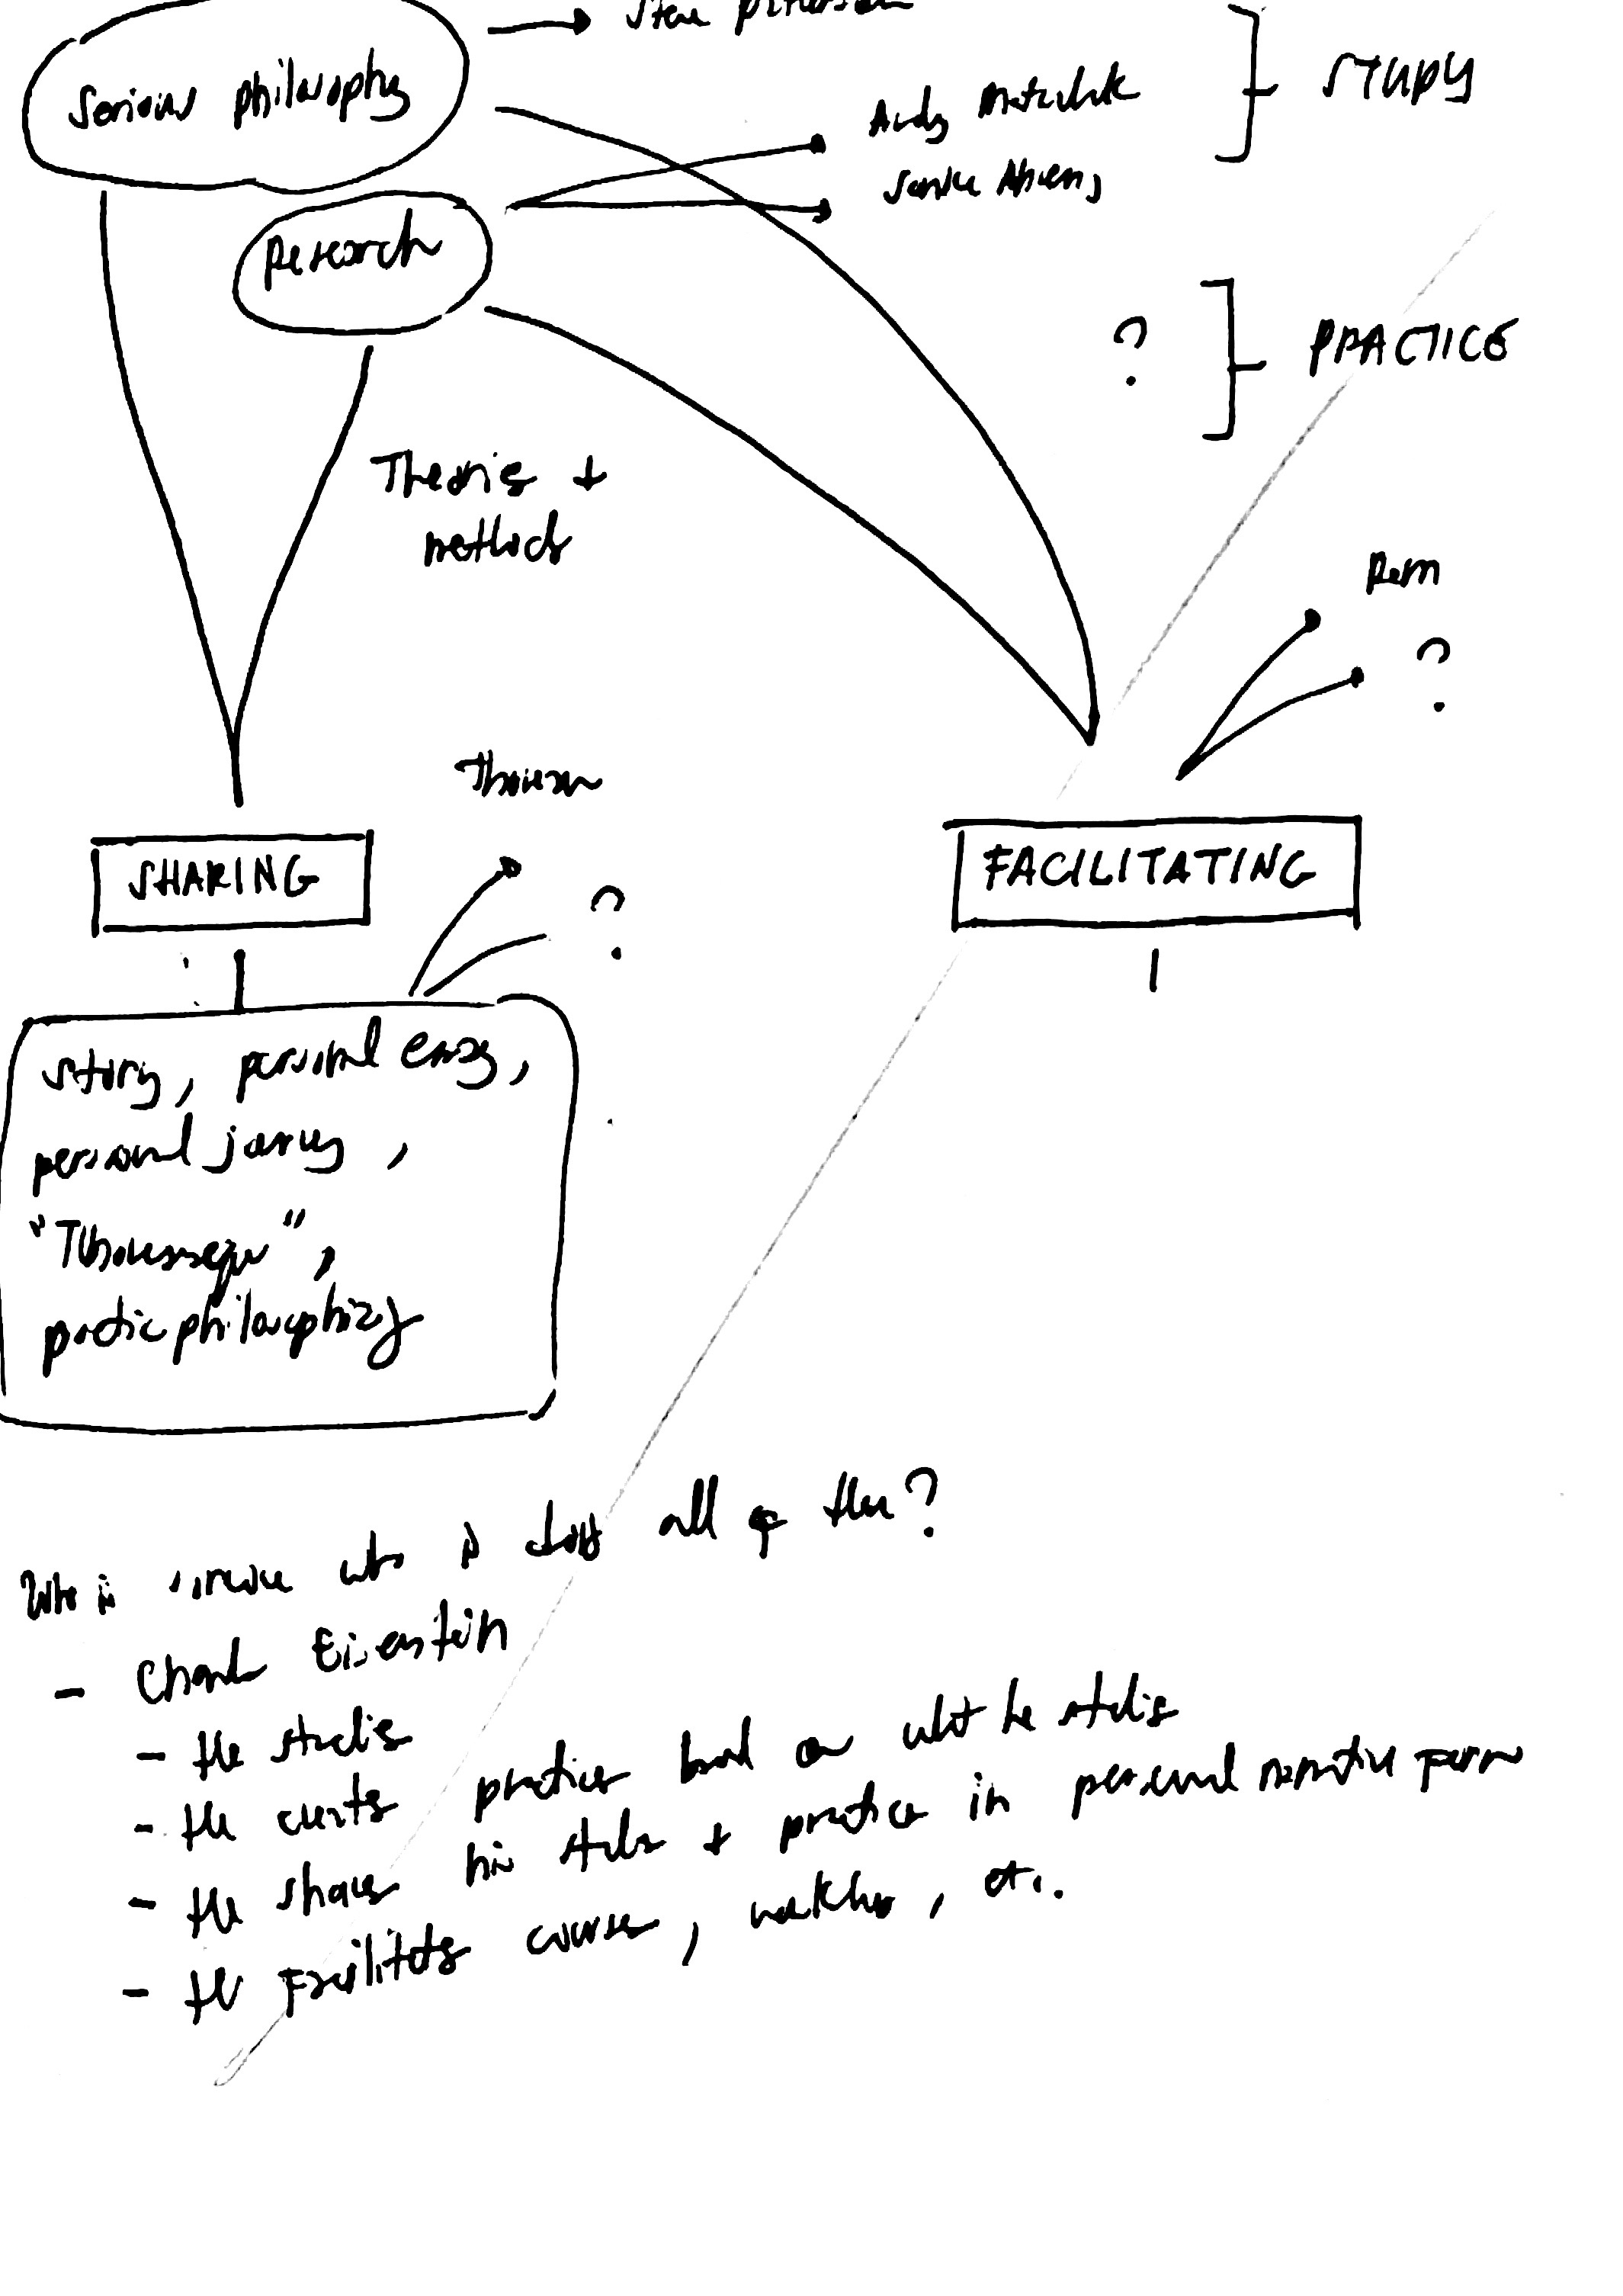 Serious philosophy
STUDY
Andy Matuschak
Research
?
PRACTICE
Theories +
methods
Rem
?
Thoreau
SHARING
?
FACILITATING
story, personal essay,
personal journey,
poetic philosophizing
Who is someone who is doing all of this?
- Charles Eisenstein
- He studies
- He creates practices based on what he studies
- He shares his studies + practices in personal narrative form
- He facilitates courses, etc.